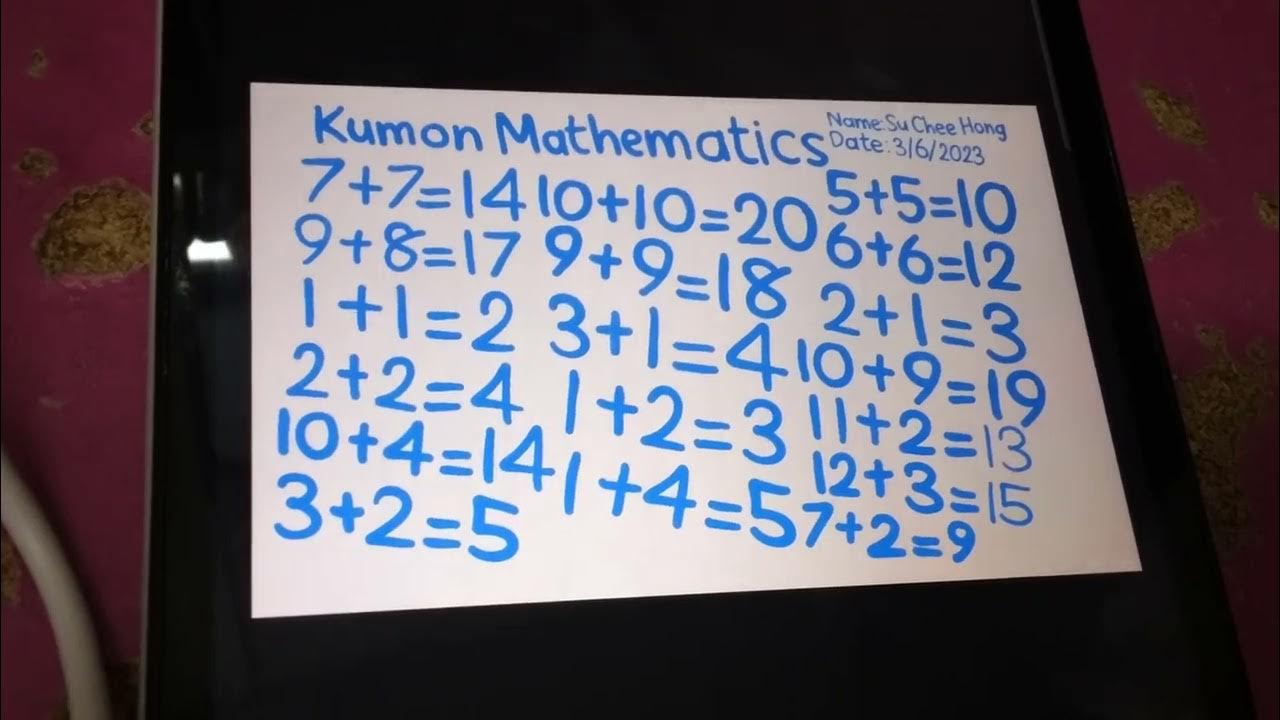 Kumon Mathematics
Name: Su Chee Hong
Date: 3/6/2023
7+7=14 10+10=20 5+5=10
9+8=17 9+9=18 6+6=12
1+1=2 3+1=4 2+1=3
2+2=4 1+2=3 10+9=19
10+4=14 1+4=5 11+2=13
3+2=5 12+3=15
7+2=9